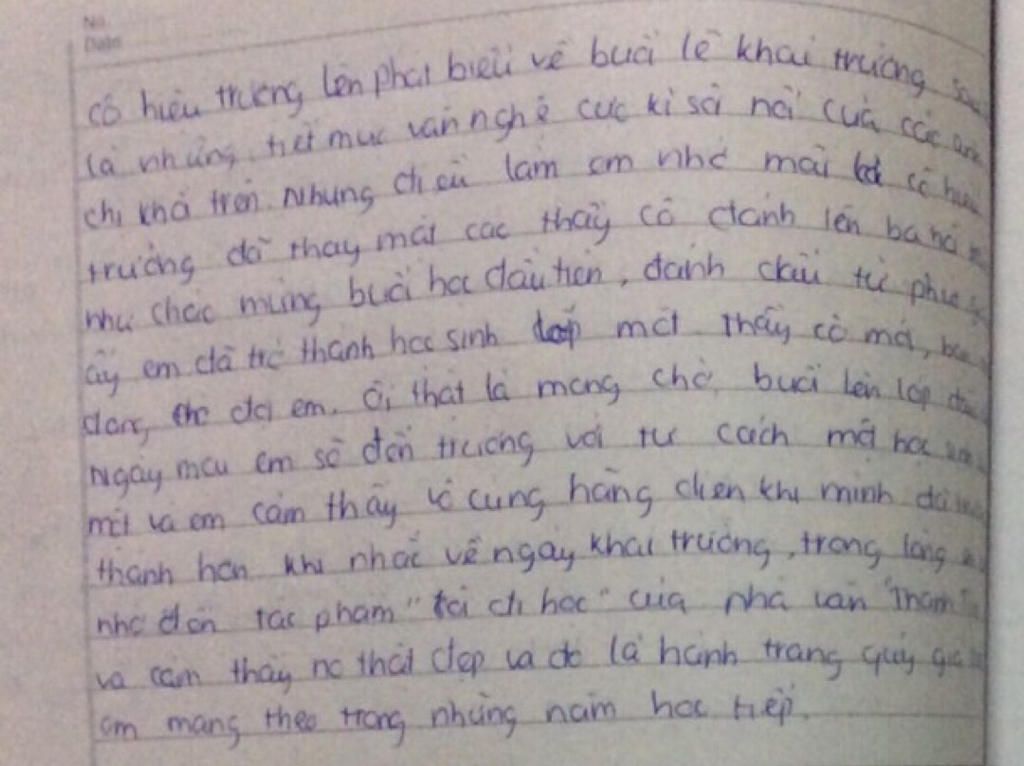 No.
Date
cô hiệu trưởng lên phát biểu về buổi lễ khai trường sau
là những tiết mục văn nghệ cực kì sôi nổi của các anh
chị khá trên. Nhưng điều làm em nhớ mãi là cô hiệu
trưởng đã thay mặt các thầy cô đánh lên ba hồi
như chào mừng buổi học đầu tiên, đánh dấu từ phút
ấy em đã trở thành học sinh lớp một. Thầy cô mới, bạn
đang chờ đợi em. Ôi thật là mong chờ buổi lên lớp đầu
Ngày mai em sẽ đến trường với tư cách một học
một và em cảm thấy vô cùng hãng diện khi mình đã
thành hơn khi nhắc về ngày khai trường, trong lòng
nhớ đến tác phẩm "tôi đi học" của nhà văn "Thanh
và cảm thấy nó thật đẹp và đó là hành trang quý giá
em mang theo trong những năm học tiếp.